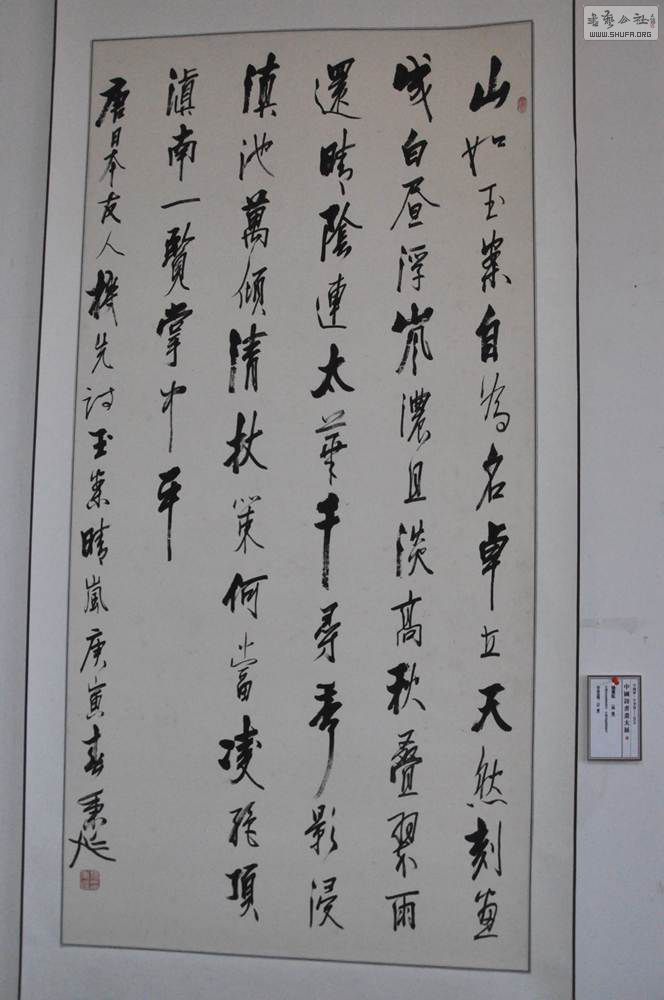 山如玉案自为名卓立天然刻畫
成白昼浮嵐濃且淡髙秋疊翠雨
還晴陰連太華千尋秀影浸
滇池萬傾清杖策何當凌絶頂
滇南一覽掌中平
唐日本友人機先詩玉案晴嵐庚寅春秉延
中國詩書畫大展
书艺公社
WWW.SHUFA.ORG